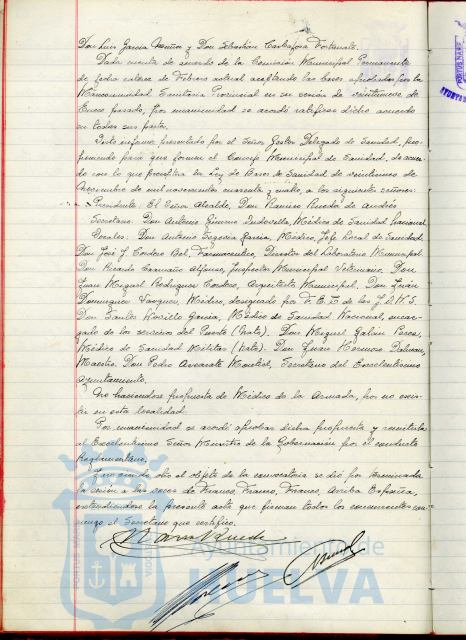 Don Luis García Muñoz y Don Sebastián Carbajosa Fortunato.
Dada cuenta de acuerdo de la Comisión Municipal Permanente
de fecha catorce de Febrero actual aceptando las bases aprobadas por la
Mancomunidad Sanitaria Provincial en su sesión de veintinueve de
Enero pasado, por unanimidad se acordó ratificar dicho acuerdo
en todas sus partes.
Visto informe presentado por el Señor Gestor Delegado de Sanidad, pro-
poniendo para que formen el Consejo Municipal de Sanidad, de acuer-
do con lo que preceptúa la Ley de Bases de Sanidad de veinticinco de
Noviembre de mil novecientos cuarenta y cuatro, a los siguientes señores:
Presidente: El Señor Alcalde, Don Ramiro Rueda de Andrés
Secretario: Don Antonio Médico de Sanidad Nacional
Vocales: Don Antonio Segovia García, Médico, Jefe Local de Sanidad.
Don José J. Cordero Bel, Farmaceutico, Director del Laboratorio Municipal.
Don Ricardo Alfonso, Inspector Municipal Veterinario. Don
Juan Miguel Rodríguez Cordero, Arquitecto Municipal. Don Juan
Domínguez Vázquez, Médico, designado por F. E. T. de las J.O.N.S.
Don Carlos García, Médico de Sanidad Nacional, encar-
gado de los servicios del Puerto (Nato). Don Miguel Galán
Médico de Sanidad Militar (nato). Don Juan Hermoso
Maestro. Don Pedro Montiel, Secretario del Excelentísimo
Ayuntamiento.
No haciéndose propuesta de Médico de la Armada, por no exis-
tir en esta localidad.
Por unanimidad se acordó aprobar dicha propuesta y remitirla
al Excelentísimo Señor Ministro de la Gobernación por el conducto
Reglamentario.
Y no siendo otro el objeto de la convocatoria se dió por terminada
la sesión a las voces de Franco, Franco, Franco, Arriba España,
extendiéndose la presente acta que firman todos los concurrentes con-
migo el Secretario que certifico.
Ayuntamiento de
HUELVA